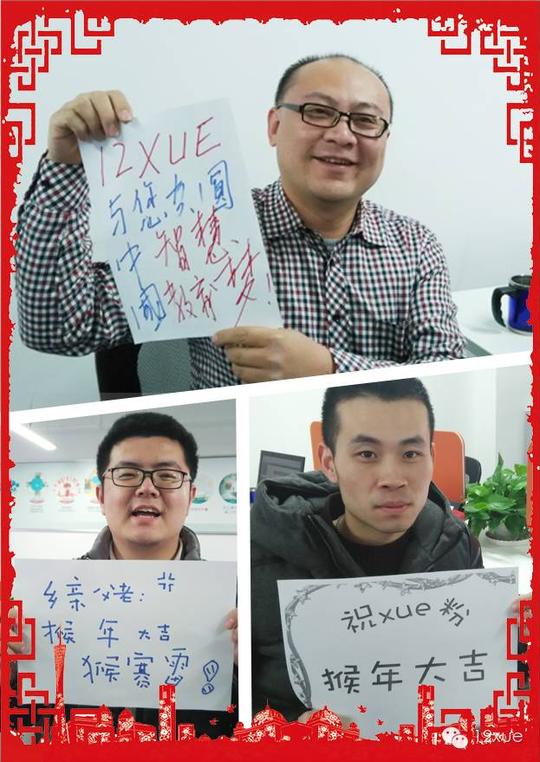 12XUE
与您共圆
中智慧
国教育梦!
乡亲父老:
猴年大吉
猴赛雷!!
祝xue粉
猴年大吉
12xue